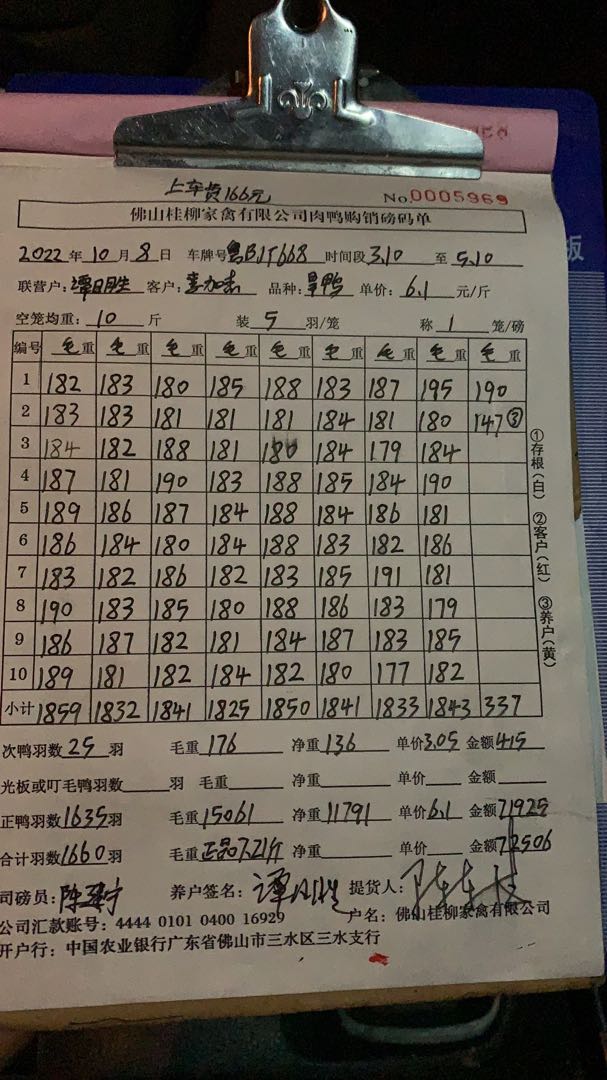 上车费166元
No.0005969
佛山桂柳家禽有限公司肉鸭购销磅码单
2022年10月8日 车牌号粤BJT668 时间段3.10至5.10
联营户:谭日胜 客户: 品种:旱鸭 单价:6.1元/斤
空笼均重:10斤 装5羽/笼 称1笼/磅
编号 毛重 毛重 毛重 毛重 毛重 毛重 毛重 毛重 毛重
1 182 183 180 185 188 183 187 195 190
2 183 183 181 181 181 184 181 180 147③
3 184 182 188 181 180 184 179 184
4 187 181 190 183 188 185 184 190
5 189 186 187 184 188 184 186 181
6 186 184 180 184 188 183 182 186
7 183 182 186 182 183 185 191 181
8 190 183 185 180 188 186 183 179
9 186 187 182 181 184 187 183 185
10 189 181 182 184 182 180 177 182
小计 1859 1832 1841 1825 1850 1841 1833 1843 337
①存根(白) ②客户(红) ③养户(黄)
次鸭羽数25羽 毛重176 净重136 单价3.05 金额415
光板或叮毛鸭羽数 羽 毛重 净重 单价 金额
正鸭羽数1635羽 毛重15061 净重11791 单价6.1 金额71925
合计羽数1660羽 毛重正品7.21斤 净重 金额72506
司磅员: 养户签名: 提货人:
公司汇款账号:4444 0101 0400 16929 户名:佛山桂柳家禽有限公司
开户行:中国农业银行广东省佛山市三水区三水支行
板